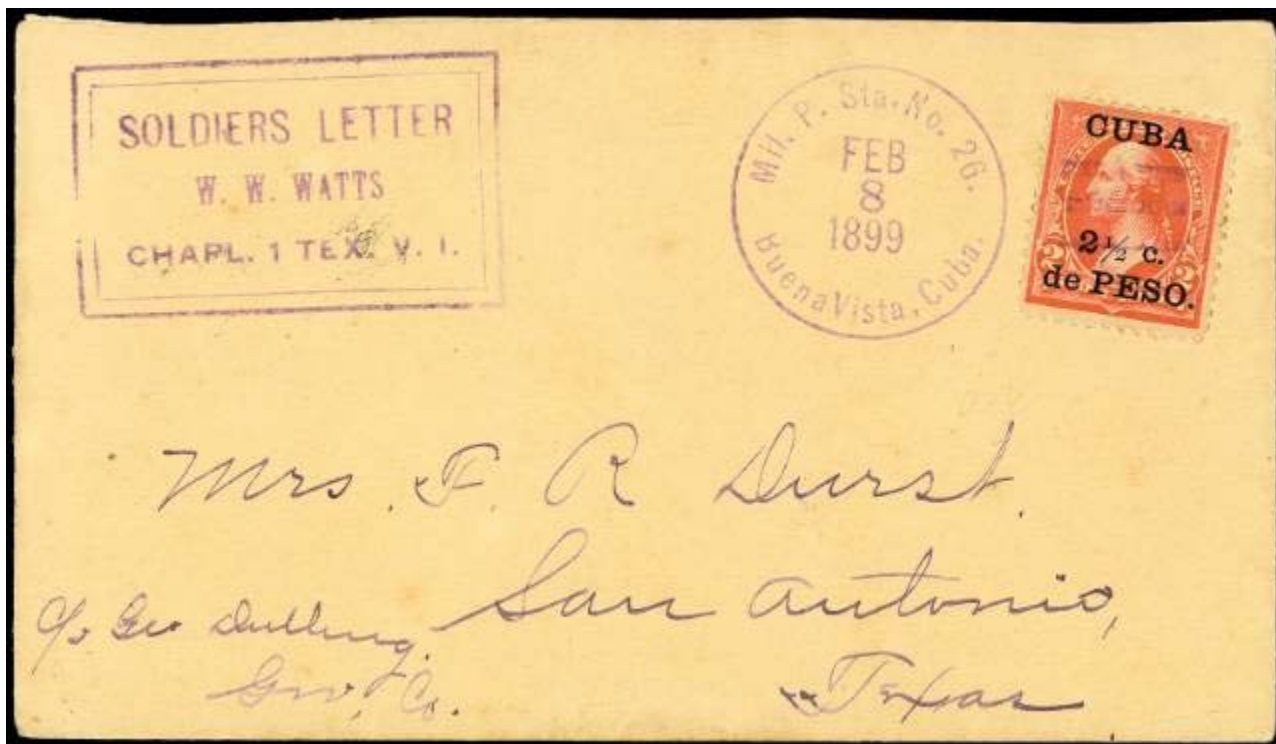 SOLDIERS LETTER
W. W. WATTS
CHAPL. 1 TEX. V. I.
Mil. P. Sta. No. 26.
FEB
8
1899
Buena Vista, Cuba.
CUBA
2 ½ c.
de PESO.
2 2
Mrs. F. R Durst.
San Antonio,
Texas
c/o Geo Dulling.
Co.